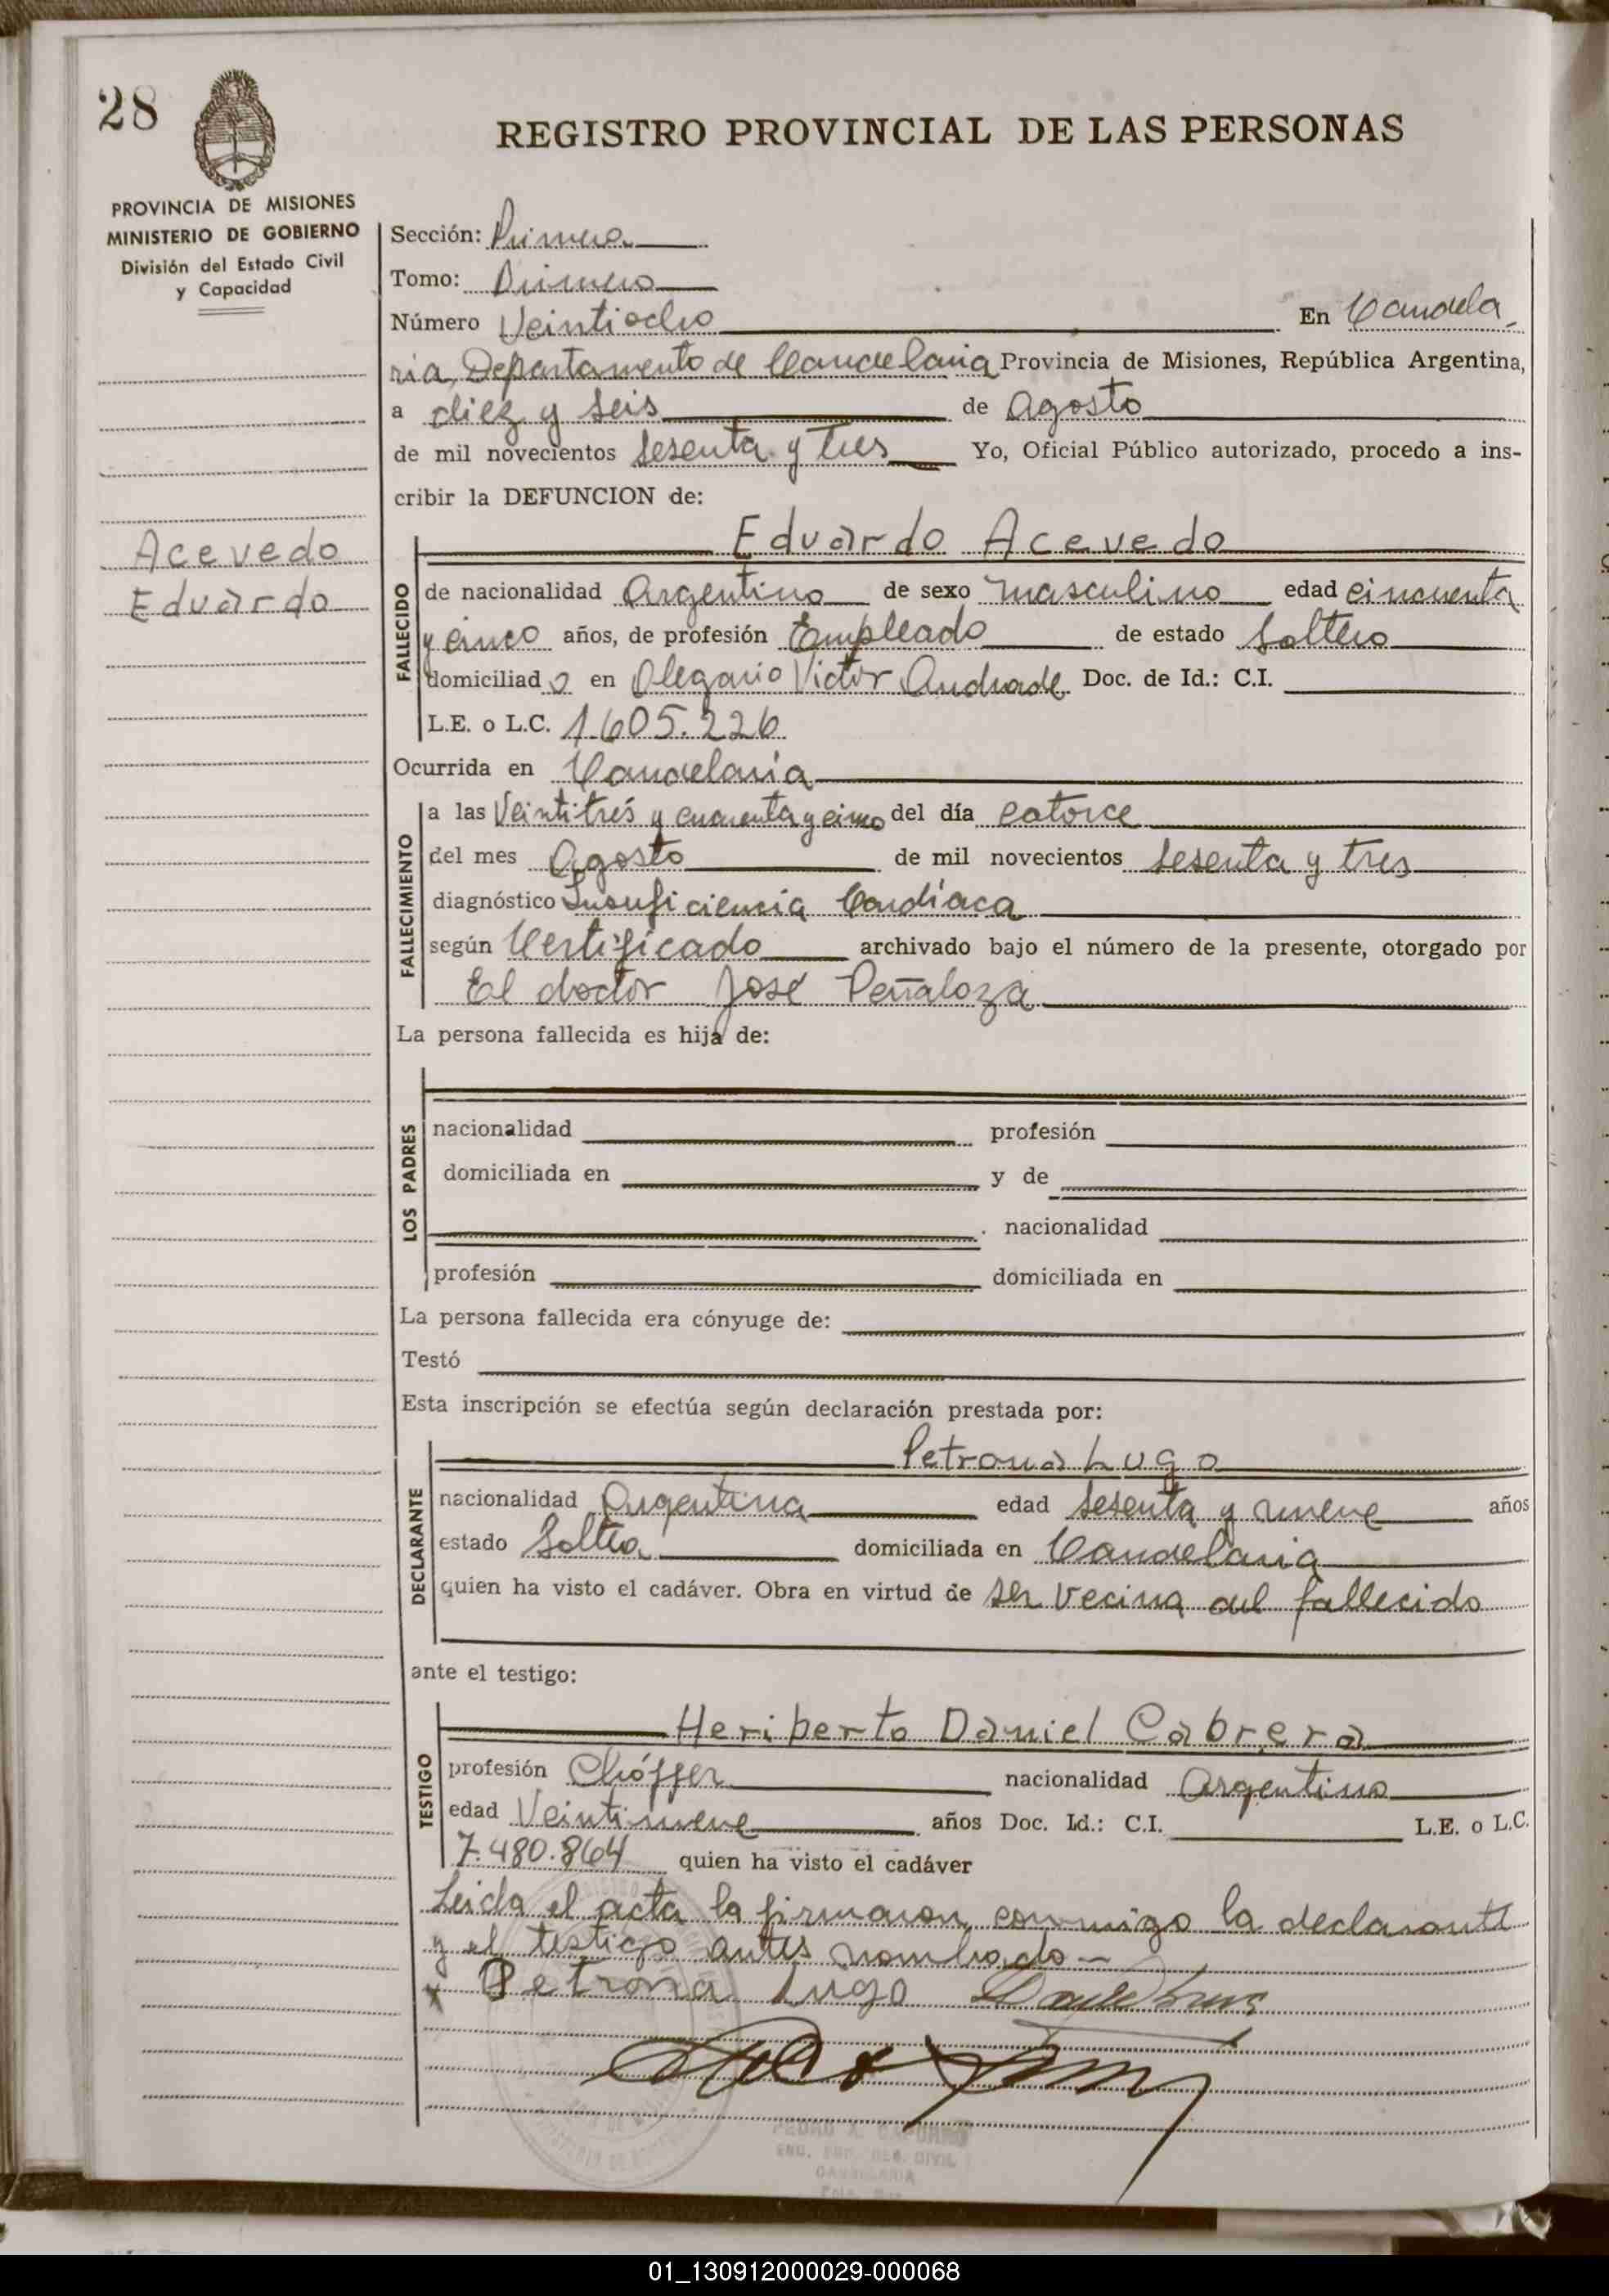 28
REGISTRO PROVINCIAL DE LAS PERSONAS
PROVINCIA DE MISIONES
MINISTERIO DE GOBIERNO
División del Estado Civil
y Capacidad
Acevedo
Eduardo
Sección: Primera
Tomo: Primero
Número Veintiocho En Candela
ria, Departamento de Candelaria Provincia de Misiones, República Argentina,
a diez y seis de Agosto
de mil novecientos sesenta y tres Yo, Oficial Público autorizado, procedo a ins-
cribir la DEFUNCION de:
FALLECIDO
Eduardo Acevedo
de nacionalidad Argentino de sexo masculino edad cincuenta
y cinco años, de profesión Empleado de estado Soltero
domiciliado en Olegario Victor Andrade Doc. de Id.: C.I.
L.E. o L.C. 1.605.226
Ocurrida en Candelaria
FALLECIMIENTO
a las Veintitrés y cuarenta y cinco del día catorce
del mes Agosto de mil novecientos sesenta y tres
diagnóstico Insuficiencia Cardíaca
según Certificado archivado bajo el número de la presente, otorgado por
El doctor José Peñaloza
La persona fallecida es hija de:
LOS PADRES
nacionalidad profesión
domiciliada en y de
nacionalidad
profesión domiciliada en
La persona fallecida era cónyuge de:
Testó
Esta inscripción se efectúa según declaración prestada por:
DECLARANTE
Petrona Lugo
nacionalidad Argentina edad sesenta y nueve años
estado Soltera domiciliada en Candelaria
quien ha visto el cadáver. Obra en virtud de ser vecina del fallecido
ante el testigo:
TESTIGO
Heriberto Daniel Cabrera
profesión Chóffer nacionalidad Argentino
edad Veintinueve años Doc. Id.: C.I. L.E. o L.C.
7.480.864 quien ha visto el cadáver
Leida el acta la firmaron conmigo la declarante
y el testigo antes nombrado
x Petrona Lugo
CANDELARIA
01_130912000029-000068